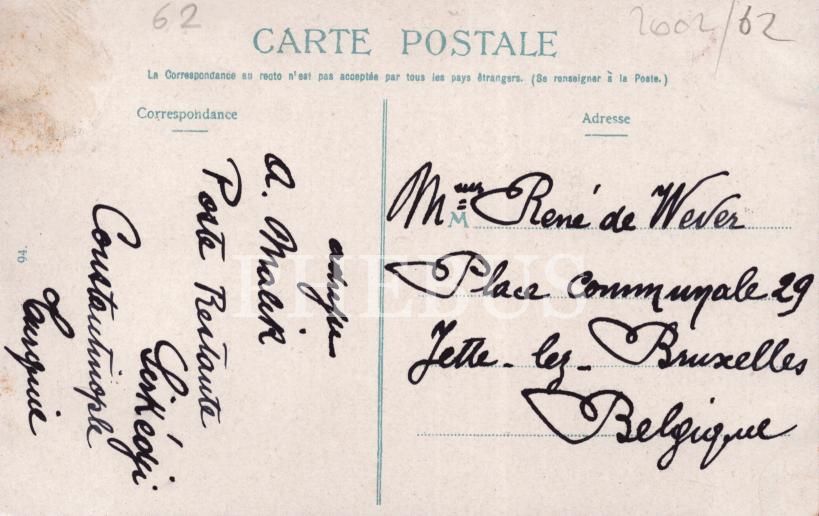 62
2602/62
CARTE POSTALE
La Correspondance au recto n'est pas acceptée par tous les pays étrangers. (Se renseigner à la Poste.)
Correspondance
Adresse
A. Malik
Poste Restante
Sirkédji
Constantinople
Turquie
94.
M
Mme René de Wever
Place communale 29
Jette-lez-Bruxelles
Belgique
PHEBUS